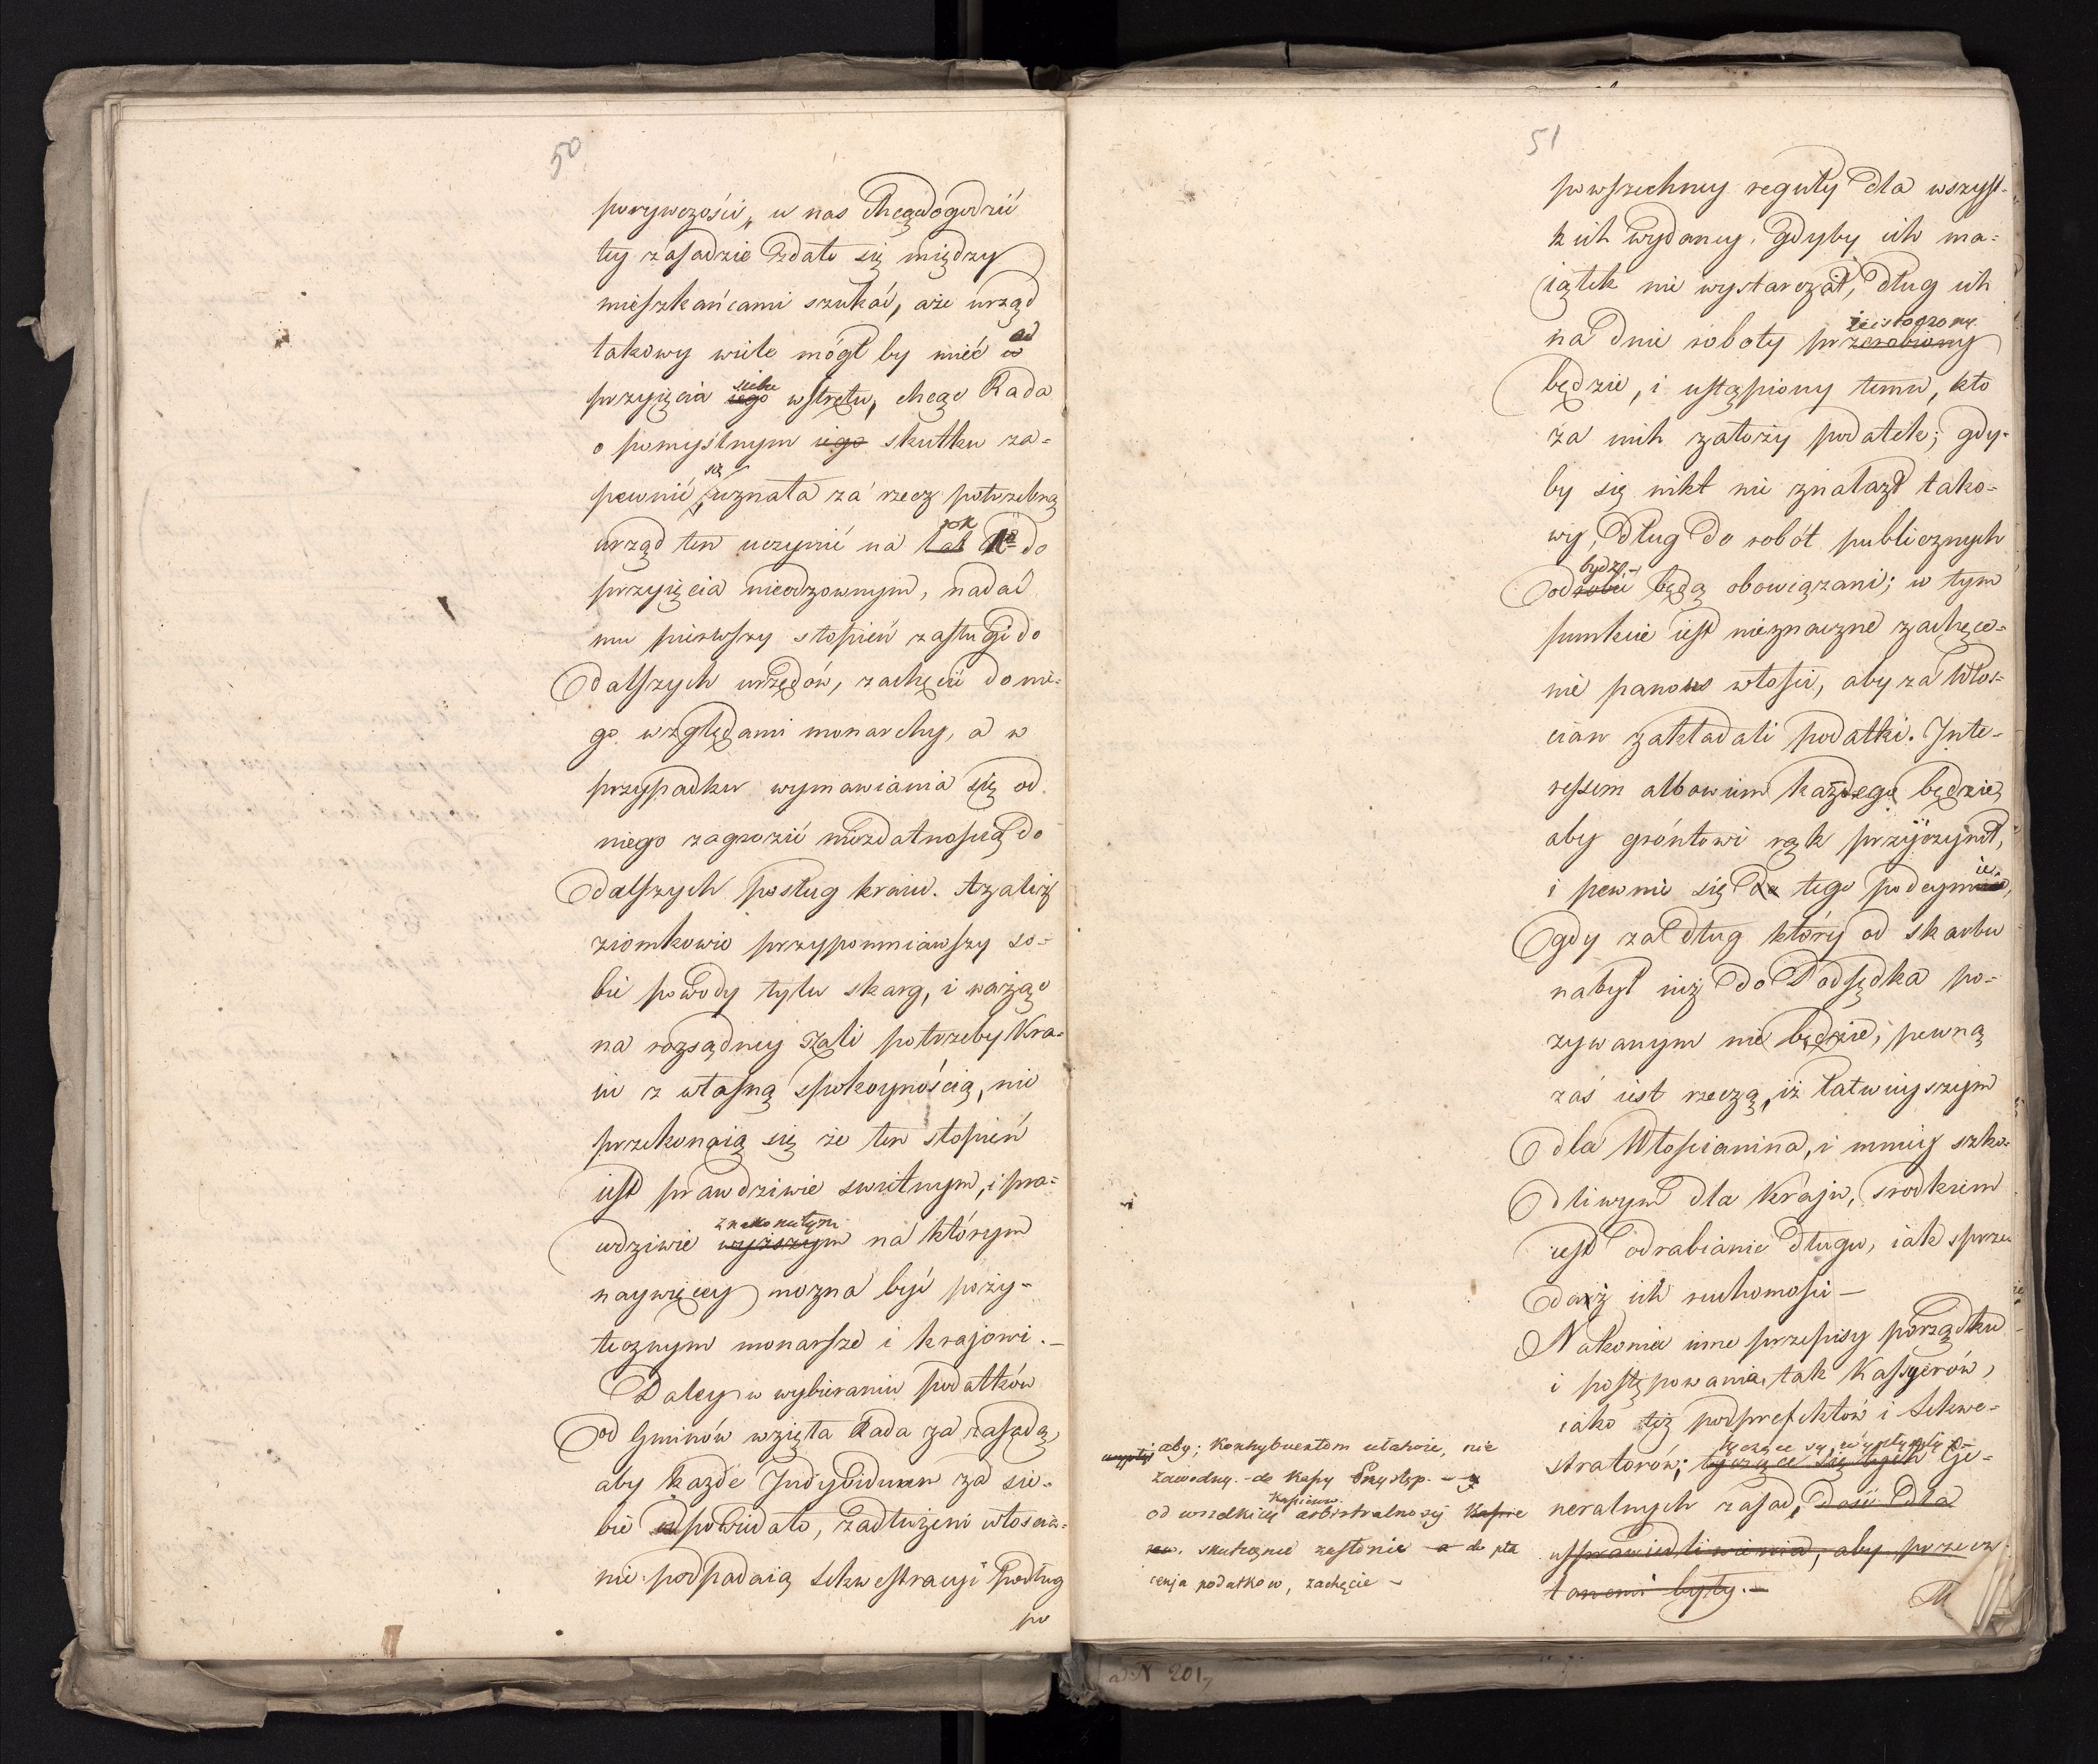 50
porywczości, u nas chcąc dogodzić
tey zasadzie zdało się między
mieszkańcami szukać, a że urząd
takowy wiele mógł by mieć w od
przyięcia iego siebie wstrętu, chcąc Rada
o pomyślnym iego skutku za-
pewnić się, uznała za rzecz potrzebną
urząd ten uczynić na rok do
przyięcia nieodzownym, nadać
mu pierwszy stopień zasługi do
dalszych urzędów, zachęcić do nie-
go względami monarchy, a w
przypadku wymawiania się od
niego zagrozić niezdatnością do
dalszych posług kraiu. Azaliż
ziomkowie przypomniawszy so-
bie powody tylu skarg, i ważąc
na rozsądney szali potrzeby Kra-
iu z własną spokoynością, nie
przekonaią się że ten stopień
iest prawdziwie swietnym, i pra-
wdziwie wyższym znakomitym na którym
naywięcey można być poży-
tecznym monarsze i krajowi. —
Daley w wybieraniu podatków
od Gminów wzięła Rada za zasadę,
aby każde Indywiduum za sie-
bie odpowiadało, zadłużeni włoscia-
nie podpadaią sekwestracyi podług
po
51
powszechney reguły dla wszyst-
kich wydaney, gdyby ich ma-
iątek nie wystarczał, dług ich
na dnie roboty przerobiony
będzie, i ustąpiony temu, kto
za nich założy podatek; gdy-
by się nikt nie znalazł tako-
wy, dług do robót publicznych
odrobić będą obowiązani; w tym
punkcie iest nieznaczne zachęce-
nie panow włości, aby za Włos-
cian zakładali podatki. Inte-
ressem albowiem każdego będzie,
aby gróntowi rąk przyczynił,
i pewnie się do tego podeymie,
gdy za dług który od skarbu
nabył niż do Podsędka po-
zywanym nie będzie; pewną
zaś iest rzeczą, iż łatwieyszym
dla Włościanina, i mniey szko-
dliwym dla Kraju, srodkiem
iest odrabianie długu, iak sprze-
daż ich ruchomości —
Nakoniec inne przepisy porządku
i postępowania, tak Kassyerów,
iako też podprefektów i Sekwe-
stratorów; tyczące się tych Ge-
neralnych zasad, dość dla
usprawiedliwienia, aby przeczy-
tanemi były. —
aby; kontrybuentom ułatwić, nie
zawodny do Kassy Przystęp. —
od wszelkiey Kassierow arbitralnosci
skutecznie zasłonić a do pła
cenia podatkow, zachęcić —
ad N 201,